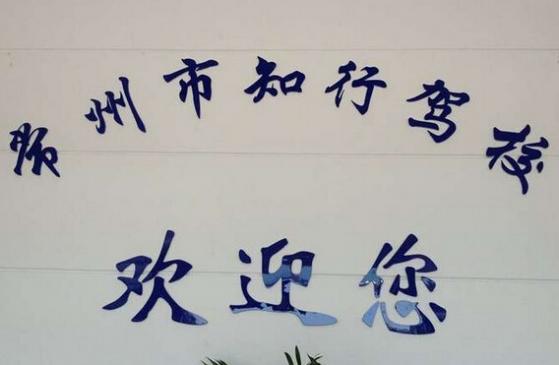 州市知行驾校
欢迎您